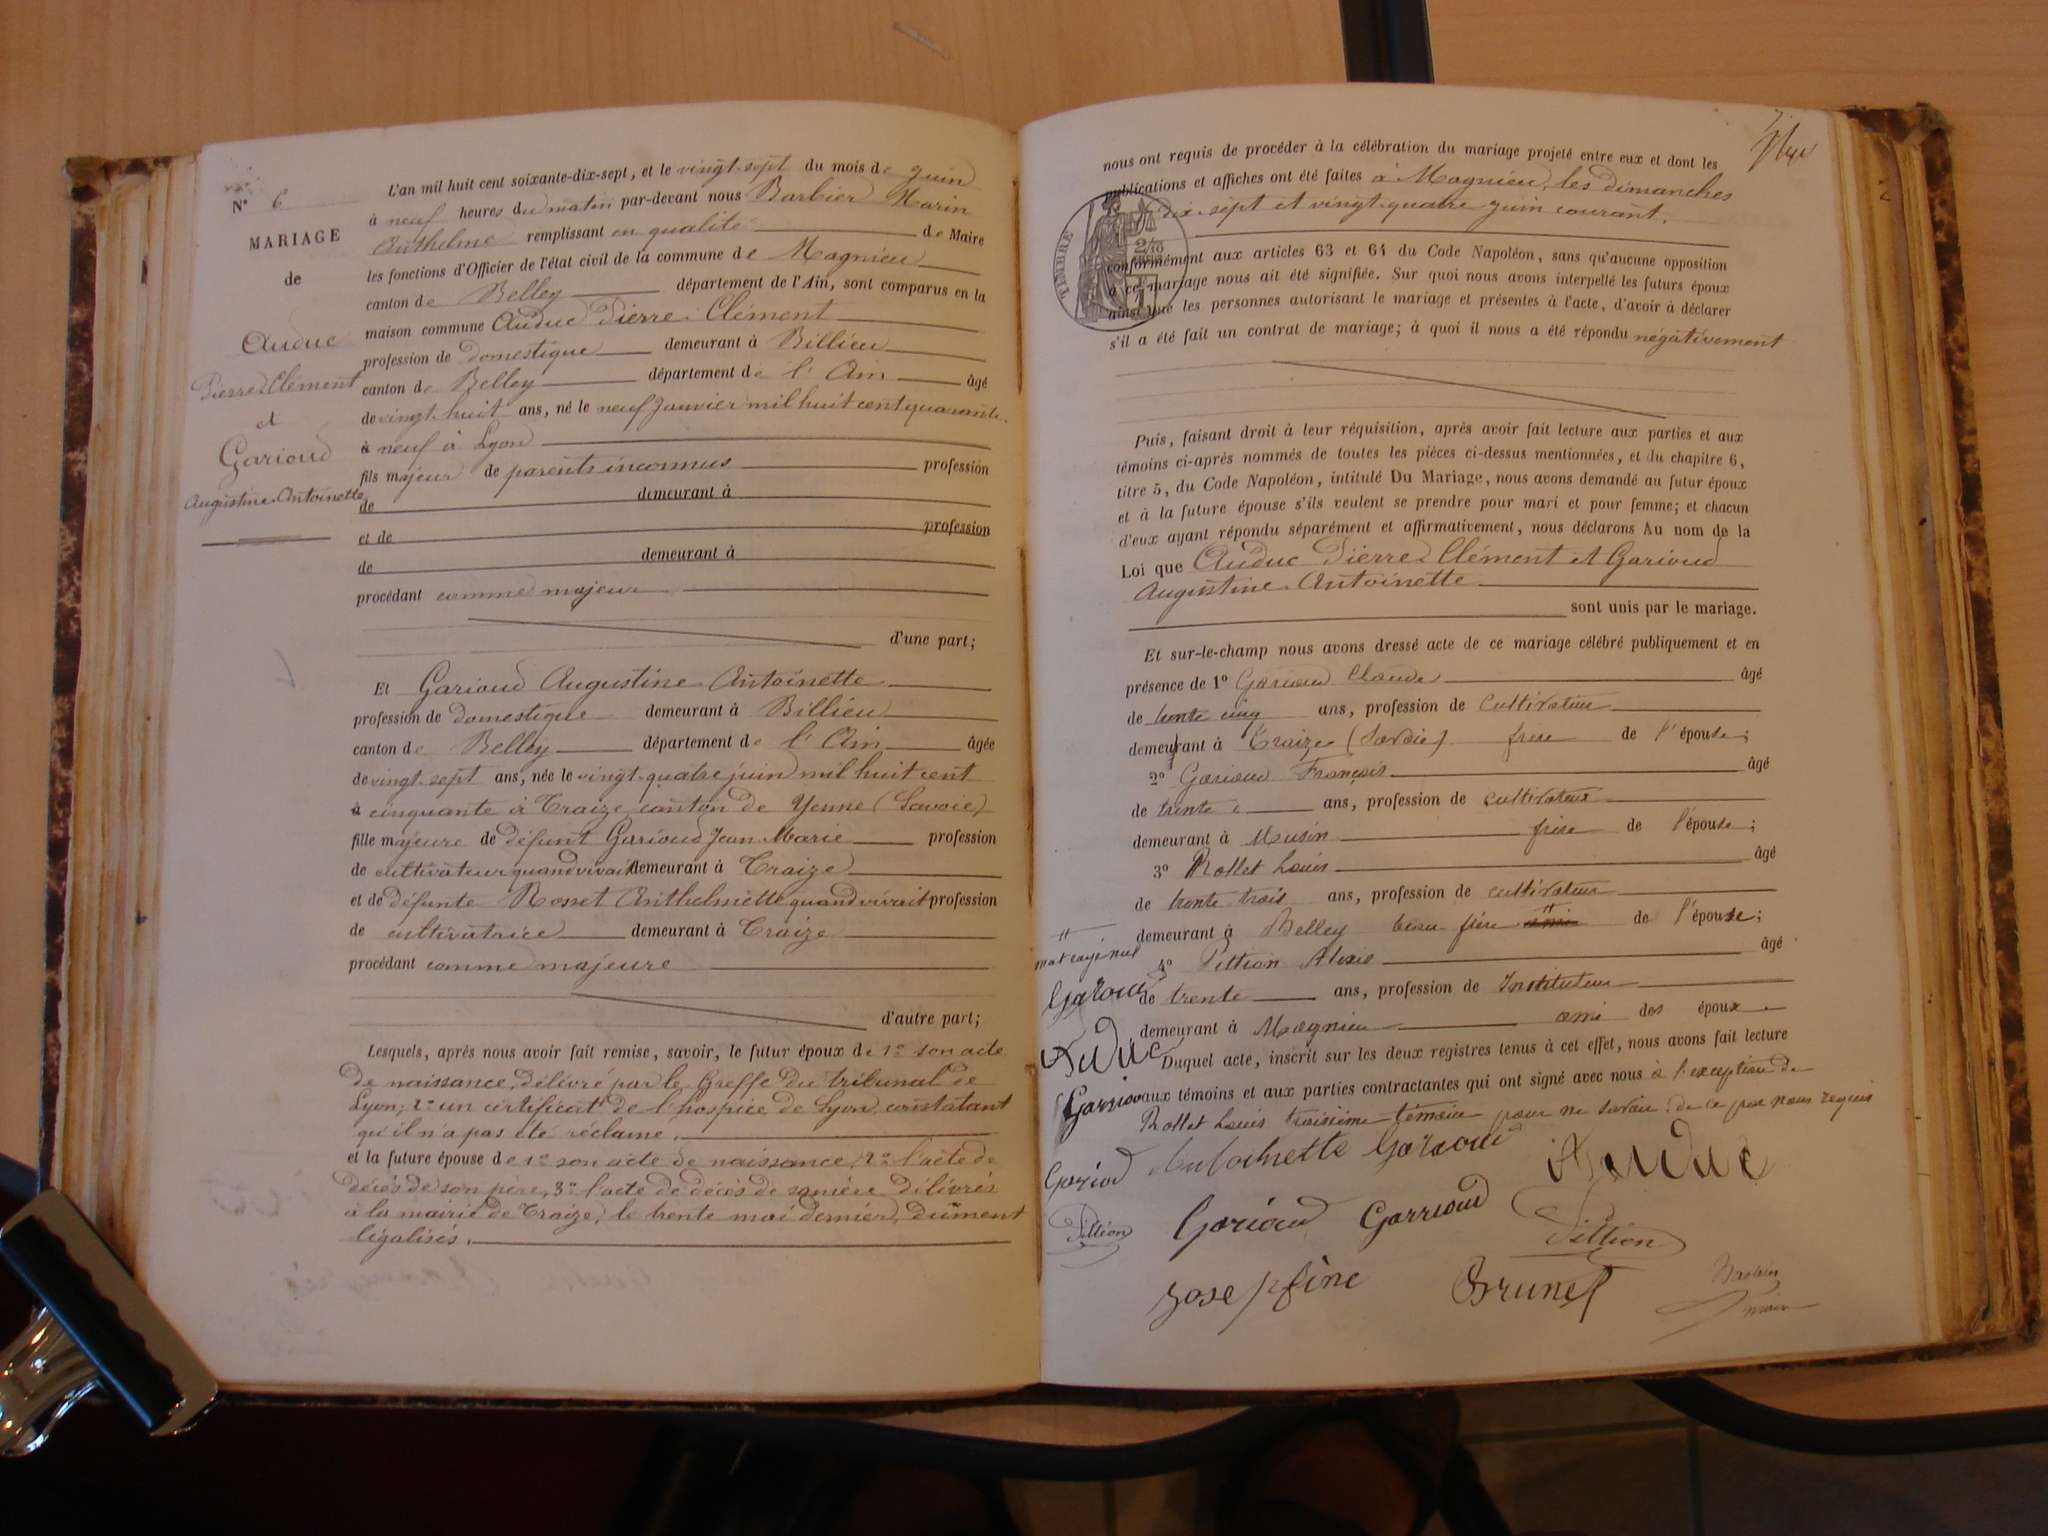 N° 6
MARIAGE
de
Auduc
Pierre Clément
et
Garioud
Augustine Antoinette
L'an mil huit cent soixante-dix-sept, et le vingt-sept du mois de juin
à neuf heures du matin par-devant nous Barbier Marin
Anthelme remplissant en qualité de Maire
les fonctions d'Officier de l'état civil de la commune de Magnieu
canton de Belley département de l'Ain, sont comparus en la
maison commune Auduc Pierre Clément
profession de domestique demeurant à Billieu
canton de Belley département de l'Ain âgé
de vingt-huit ans, né le neuf Janvier mil huit cent quarante
à neuf à Lyon
fils majeur de parents inconnus profession
de demeurant à
et de profession
de demeurant à
procédant comme majeur
d'une part;
Et Garioud Augustine Antoinette
profession de domestique demeurant à Billieu
canton de Belley département de l'Ain âgée
de vingt-sept ans, née le vingt-quatre juin mil huit cent
à cinquante à Traize canton de Yenne (Savoie)
fille majeure de défunt Garioud Jean Marie profession
de cultivateur quand vivait demeurant à Traize
et de défunte Rosset Anthelmette quand vivait profession
de cultivatrice demeurant à Traize
procédant comme majeure
d'autre part;
Lesquels, après nous avoir fait remise, savoir, le futur époux de 1° son acte
de naissance, délivré par le Greffe du tribunal de
Lyon; 2° un certificat de l'hospice de Lyon constatant
qu'il n'a pas été réclamé.
et la future épouse de 1° son acte de naissance, 2° l'acte de
décès de son père, 3° l'acte de décès de sa mère délivrés
à la mairie de Traize, le trente mai dernier, dûment
légalisés.
nous ont requis de procéder à la célébration du mariage projeté entre eux et dont les
publications et affiches ont été faites à Magnieu, les dimanches
dix-sept et vingt-quatre juin courant.
TIMBRE
conformément aux articles 63 et 64 du Code Napoléon, sans qu'aucune opposition
à ce mariage nous ait été signifiée. Sur quoi nous avons interpellé les futurs époux
ainsi que les personnes autorisant le mariage et présentes à l'acte, d'avoir à déclarer
s'il a été fait un contrat de mariage; à quoi il nous a été répondu négativement
Puis, faisant droit à leur réquisition, après avoir fait lecture aux parties et aux
témoins ci-après nommés de toutes les pièces ci-dessus mentionnées, et du chapitre 6,
titre 5, du Code Napoléon, intitulé Du Mariage, nous avons demandé au futur époux
et à la future épouse s'ils veulent se prendre pour mari et pour femme; et chacun
d'eux ayant répondu séparément et affirmativement, nous déclarons Au nom de la
Loi que Auduc Pierre Clément et Garioud
Augustine Antoinette
sont unis par le mariage.
Et sur-le-champ nous avons dressé acte de ce mariage célébré publiquement et en
présence de 1° Garioud Claude âgé
de trente cinq ans, profession de Cultivateur
demeurant à Traize (Savoie) frère de l'épouse;
2° Garioud François âgé
de trente ans, profession de cultivateur
demeurant à Musin frère de l'épouse;
3° Rollet Louis âgé
de trente trois ans, profession de cultivateur
demeurant à Belley beau frère ami de l'épouse;
mot rayé nul
4° Pittion Alexis âgé
de trente ans, profession de Instituteur
demeurant à Magnieu ami des époux.
Duquel acte, inscrit sur les deux registres tenus à cet effet, nous avons fait lecture
aux témoins et aux parties contractantes qui ont signé avec nous à l'exception de
Rollet Louis troisième témoin pour ne savoir de ce par nous requis
Garioud
Auduc
Garriou
Gariod
Pittion
Antoinette Garioud Auduc
Garioud Garrioud Pittion
Josephine Brunet